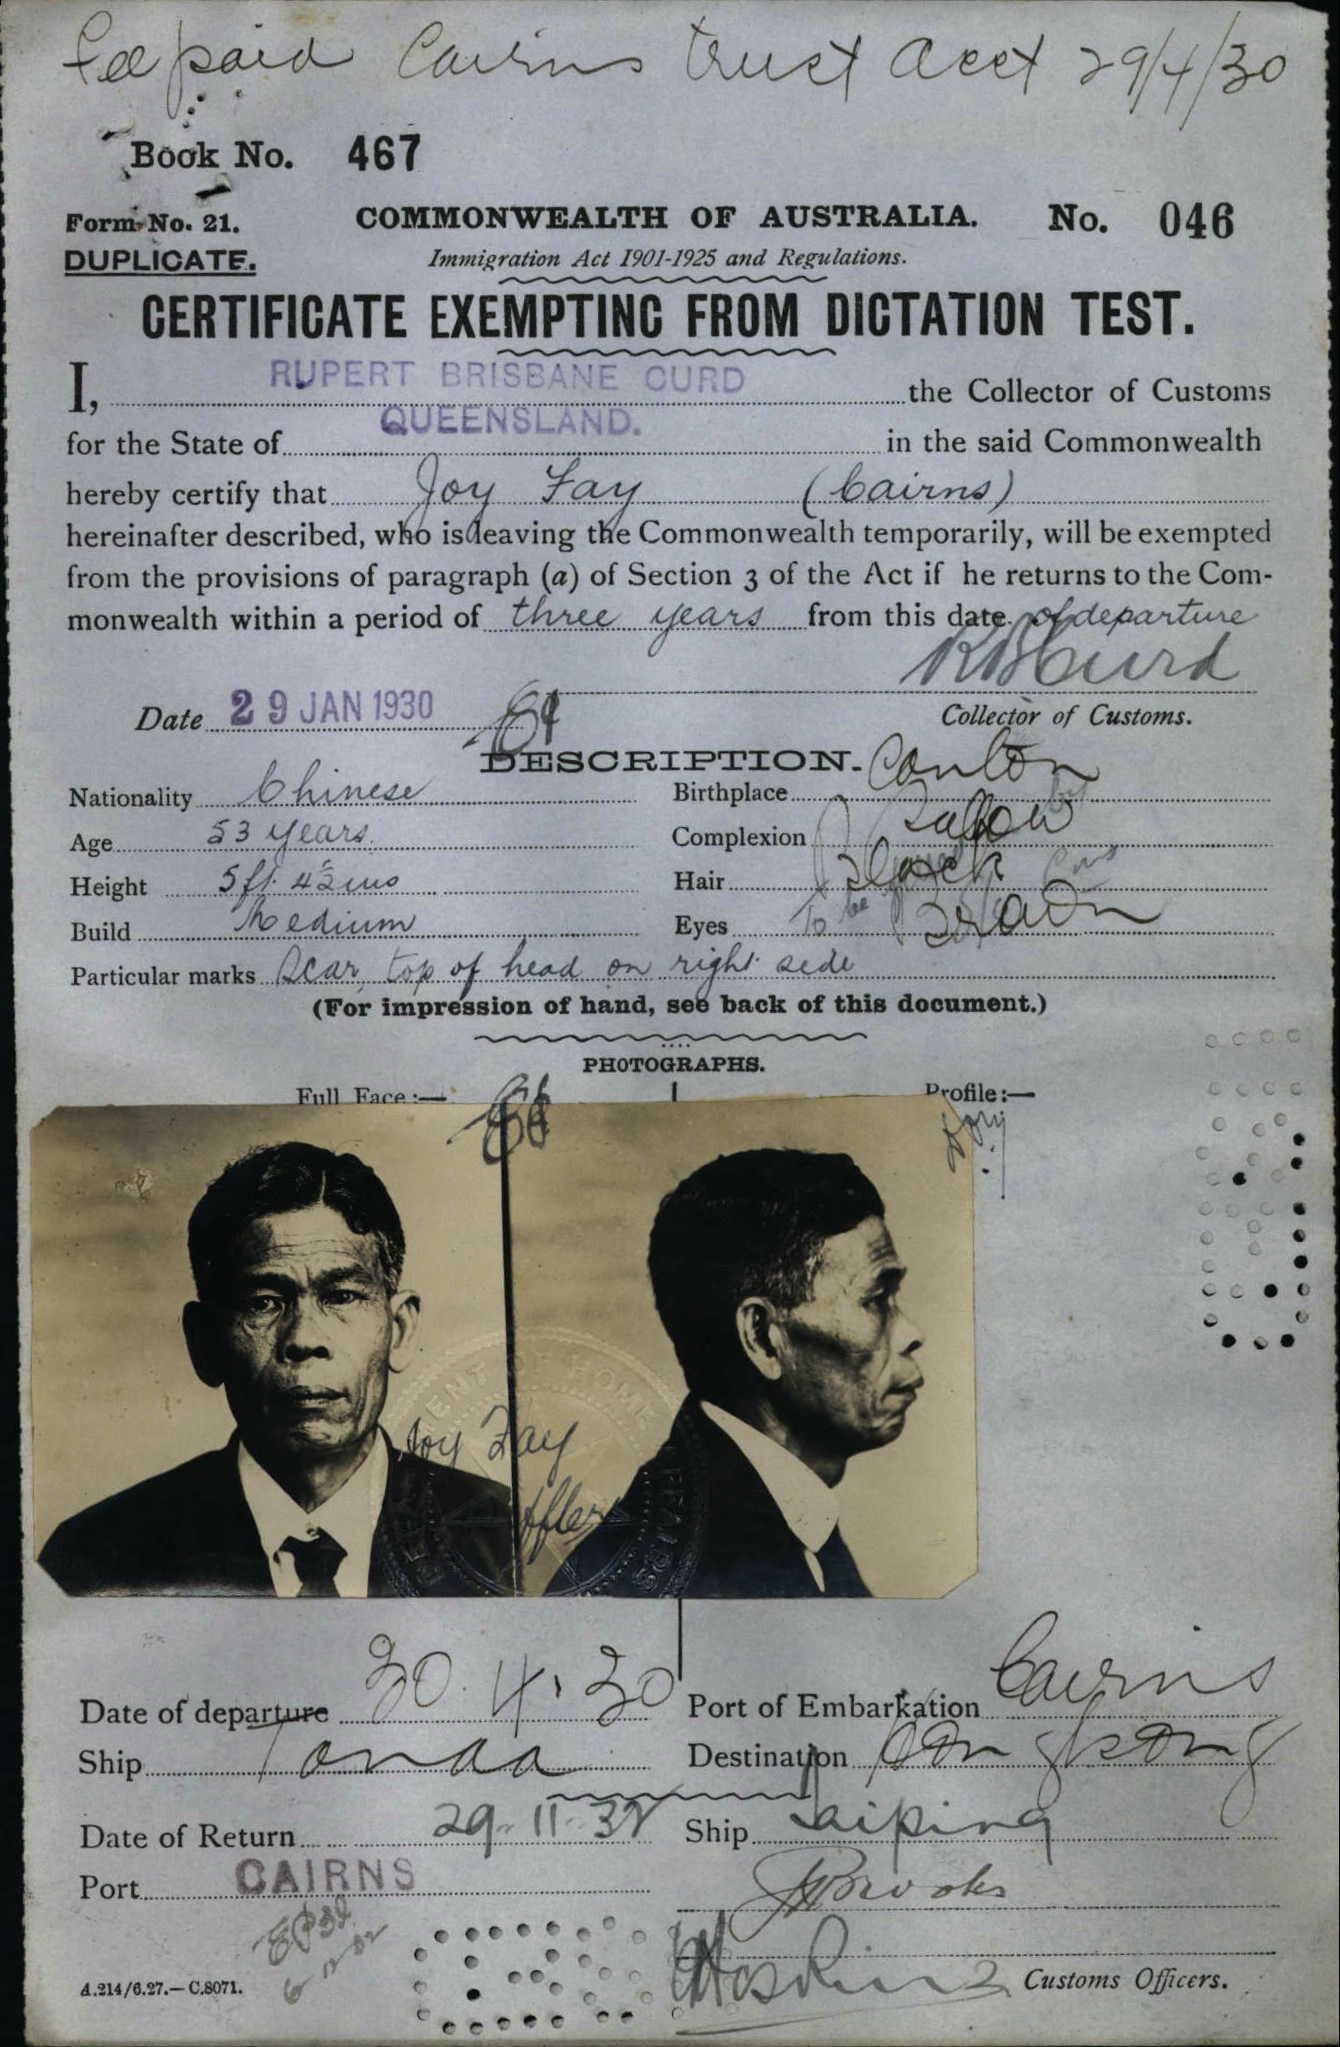 Fee paid Cairns Trust Acct 29/4/30
Book No. 467
Form No. 21. COMMONWEALTH OF AUSTRALIA. No. 046
DUPLICATE. Immigration Act 1901-1925 and Regulations.
CERTIFICATE EXEMPTING FROM DICTATION TEST.
I, RUPERT BRISBANE CURD the Collector of Customs
for the State of QUEENSLAND. in the said Commonwealth
hereby certify that Joy Fay (Cairns)
hereinafter described, who is leaving the Commonwealth temporarily, will be exempted
from the provisions of paragraph (a) of Section 3 of the Act if he returns to the Com-
monwealth within a period of three years from this date of departure
R B Curd
Date 29 JAN 1930 Collector of Customs.
DESCRIPTION.
Nationality Chinese Birthplace Canton
Age 53 years. Complexion Sallow
Height 5ft 4½ ins Hair Black
Build Medium Eyes To be Brown
Particular marks Scar, top of head on right side
(For impression of hand, see back of this document.)
PHOTOGRAPHS.
Full Face:— Profile:—
MENT OF HOME
Joy Fay
Date of departure 30.4.30 Port of Embarkation Cairns
Ship Tanda Destination Hong Kong
Date of Return 29-11-32 Ship Taiping
Port CAIRNS
J Brooks
6-12-32
A.214/6.27.—C.8071. Hoskins Customs Officers.